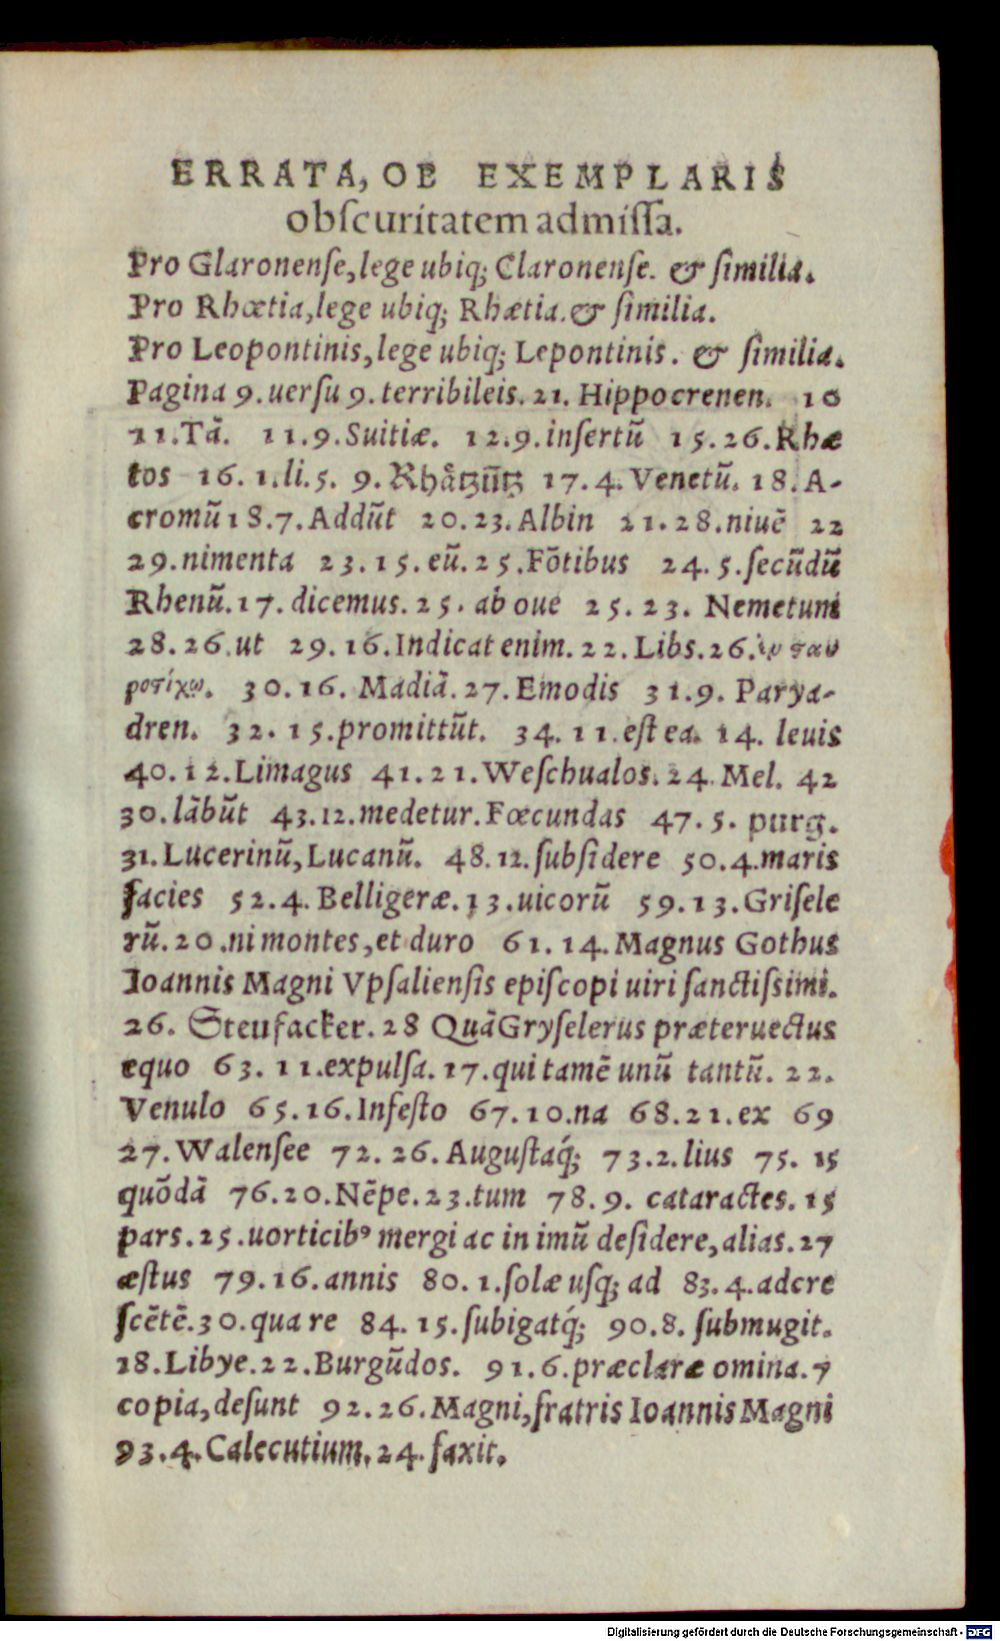 ERRATA, OB EXEMPLARIS
obſcuritatem admiſſa.
Pro Glaronenſe, lege ubiq; Claronenſe. & ſimilia.
Pro Rhœtia, lege ubiq; Rhætia. & ſimilia.
Pro Leopontinis, lege ubiq; Lepontinis. & ſimilia.
Pagina 9. uerſu 9. terribileis. 21. Hippocrenen. 10
11. Tã. 11. 9. Suitiæ. 12. 9. inſertũ 15. 26. Rhæ
tos 16. 1. li. 5. 9. Rhåtzũtz 17. 4. Venetũ. 18. A-
cromũ 18. 7. Addũt 20. 23. Albin 21. 28. niuẽ 22
29. nimenta 23. 15. eũ. 25. Fõtibus 24. 5. ſecũdũ
Rhenũ. 17. dicemus. 25. ab oue 25. 23. Nemetum
28. 26. ut 29. 16. Indicat enim. 22. Libs. 26.
30. 16. Madiã. 27. Emodis 31. 9. Parya-
dren. 32. 15. promittũt. 34. 11. eſt ea. 14. leuis
40. 12. Limagus 41. 21. Weſchualos. 24. Mel. 42
30. lãbũt 43. 12. medetur. Fœcundas 47. 5. purg.
31. Lucerinũ, Lucanũ. 48. 12. ſubſidere 50. 4. maris
facies 52. 4. Belligeræ. 13. uicorũ 59. 13. Griſele
rũ. 20. ni montes, et duro 61. 14. Magnus Gothus
Ioannis Magni Vpſalienſis epiſcopi uiri ſanctiſsimi.
26. Steüfacker. 28 Quã Gryſelerus præteruectus
equo 63. 11. expulſa. 17. qui tamẽ unũ tantũ. 22.
Venulo 65. 16. Infeſto 67. 10. na 68. 21. ex 69
27. Walenſee 72. 26. Auguſtaq́; 73. 2. lius 75. 15
quõdã 76. 20. Nẽpe. 23. tum 78. 9. cataractes. 15
pars. 25. uorticibꝰ mergi ac in imũ deſidere, alias. 27
æſtus 79. 16. annis 80. 1. ſolæ uſq; ad 83. 4. adcre
ſcẽtẽ. 30. qua re 84. 15. ſubigatq́; 90. 8. ſubmugit.
18. Libye. 22. Burgũdos. 91. 6. præclaræ omina. 7
copia, deſunt 92. 26. Magni, fratris Ioannis Magni
93. 4. Calecutium. 24. faxit.
Digitalisierung gefördert durch die Deutsche Forschungsgemeinschaft - DFG